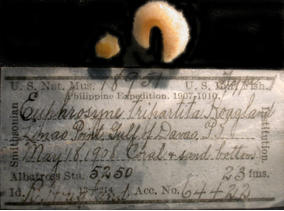 U. S. Nat. Mus. 18951 U. S. Com. Fish.
Philippine Expedition. 1907-1910.
Smithsonian
Institution
Euphrosyne tripartita Hoagland
Linao Point Gulf of Davao P.I.
May 18, 1908 Coral & sand bottom
Albatross Sta. 5250 23 fms.
Id. Acc. No. 64422